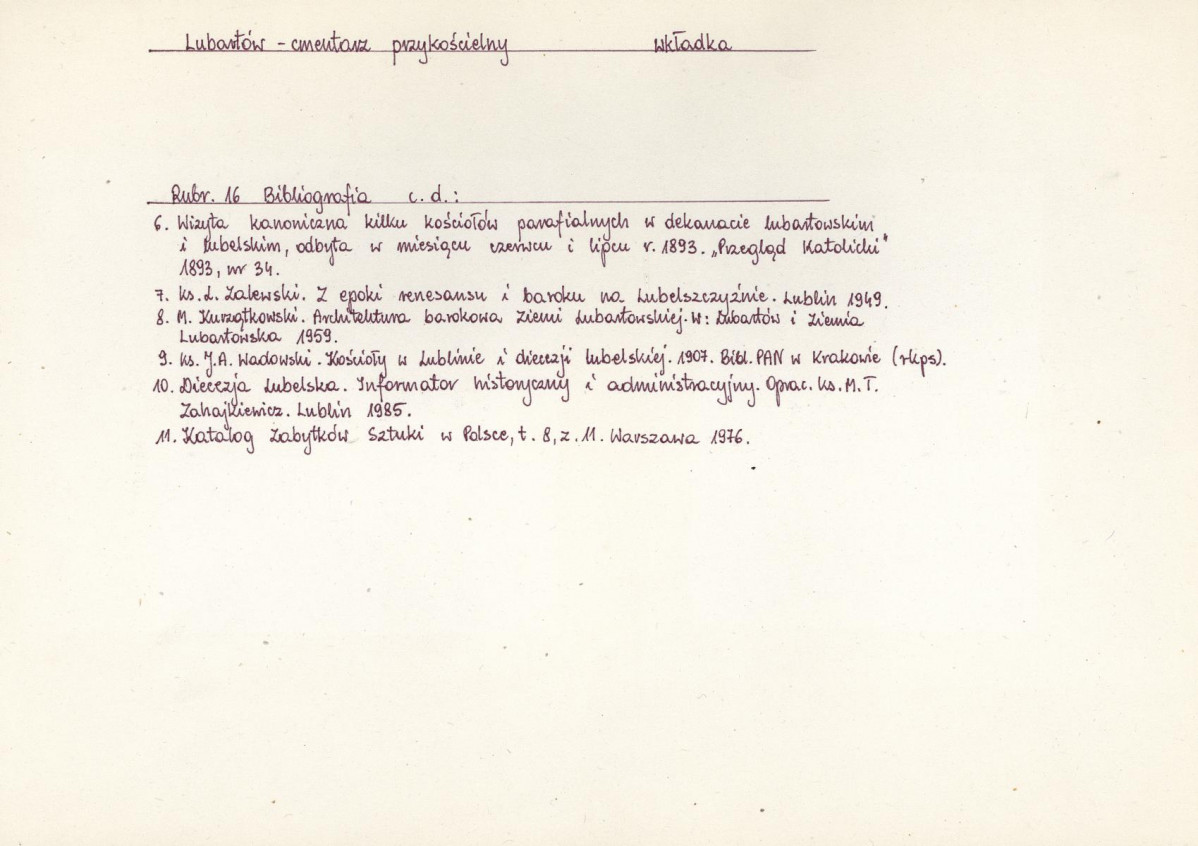 Lubartów - cmentarz przykościelny wkładka
Rubr. 16 Bibliografia c. d.:
6. Wizyta kanoniczna kilku kościołów parafialnych w dekanacie lubartowskim
i lubelskim, odbyta w miesiącu czerwcu i lipcu r. 1893. „Przegląd Katolicki"
1893, nr 34.
7. ks. L. Zalewski. Z epoki renesansu i baroku na Lubelszczyźnie. Lublin 1949.
8. M. Kurzątkowski. Architektura barokowa ziemi Lubartowskiej. W: Lubartów i Ziemia
Lubartowska 1959.
9. ks. J.A. Wadowski. Kościoły w Lublinie i diecezji lubelskiej. 1907. Bibl. PAN w Krakowie (rkps).
10. Diecezja Lubelska. Informator historyczny i administracyjny. Oprac. ks. M. T.
Zahajkiewicz. Lublin 1985.
11. Katalog Zabytków Sztuki w Polsce, t. 8, z. 11. Warszawa 1976.